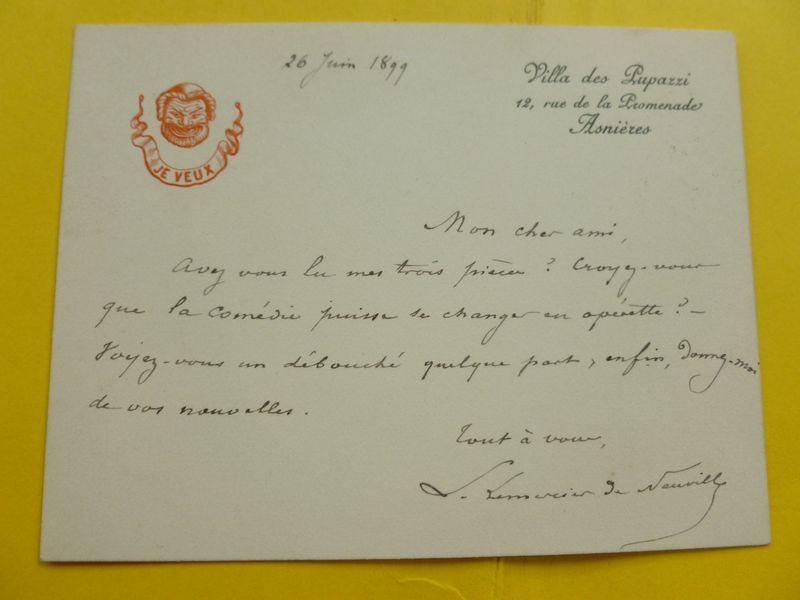 26 Juin 1899
Villa des Pupazzi
12, rue de la Promenade
Asnières
JE VEUX
Mon cher ami,
Avez vous lu mes trois pièces ? Croyez-vous
que la comédie puisse se changer en opérette ? –
Voyez-vous un débouché quelque part, enfin, donnez-moi
de vos nouvelles.
Tout à vous,
L. Lemercier de Neuville